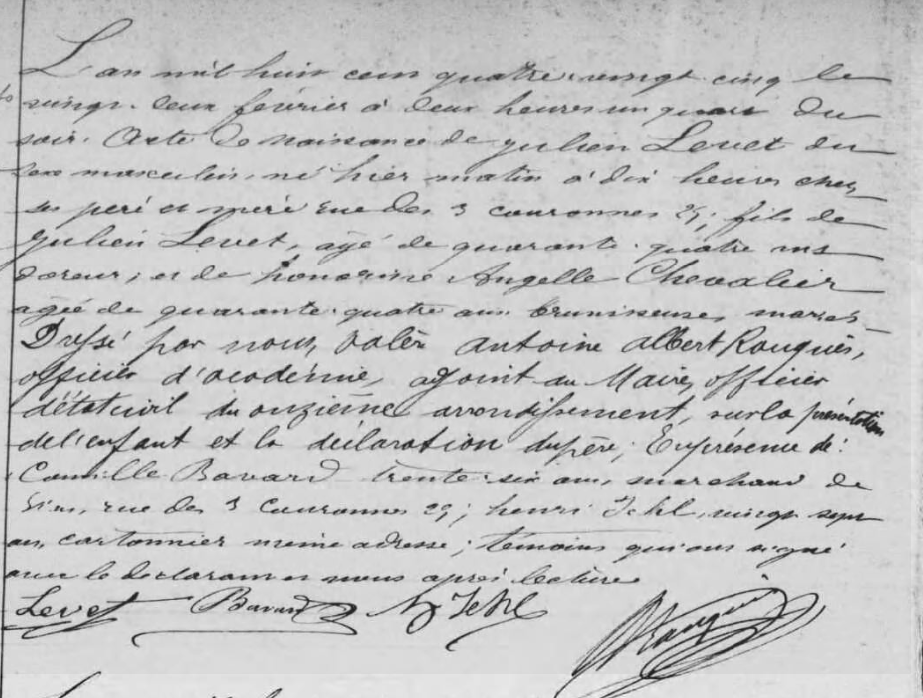 L'an mil huit cent quatre-vingt cinq le
vingt-deux février à deux heures un quart du
soir. Acte de naissance de Julien Levet du
sexe masculin, né hier matin à dix heures chez
ses père et mère rue des 3 couronnes 29; fils de
Julien Levet, agé de quarante-quatre ans
doreur, et de honorine Angelle Chevalier
agée de quarante-quatre ans brunisseuse, mariés_
Dressé par nous, Valère Antoine Albert Rouquès,
officier d'académie, adjoint au Maire, officier
d'état civil du onzième arrondissement, sur la présentation
de l'enfant et la déclaration du père; En présence de:
Camille Bavard trente-six ans, marchand de
vins, rue des 3 Couronnes 29; henri Jehl, vingt sept
ans, cartonnier même adresse; témoins qui ont signé
avec le déclarant et nous après lecture
Levet Bavard H Jehl Rouquès